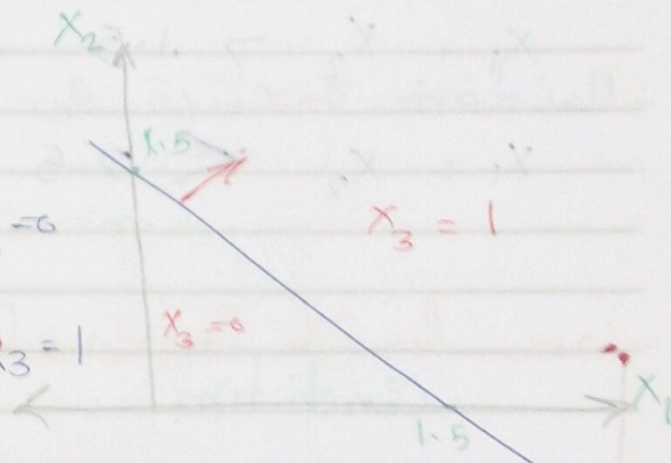 X₂
1.5
=0
X₃ = 1
X₃ = 0
X₃ = 1
X₁
1.5